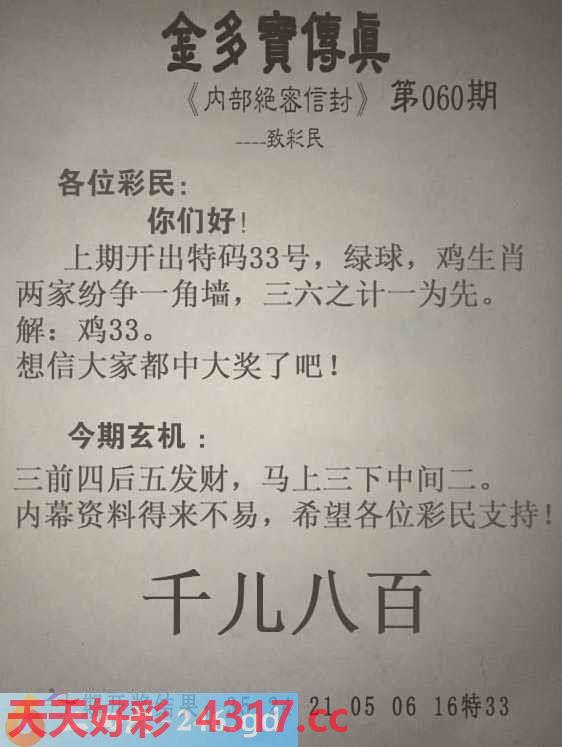 金多寶傳眞
《内部絕密信封》 第060期
----致彩民
各位彩民:
你们好!
上期开出特码33号，绿球，鸡生肖
两家纷争一角墙，三六之计一为先。
解：鸡33。
想信大家都中大奖了吧！
今期玄机：
三前四后五发财，马上三下中间二。
内幕资料得来不易，希望各位彩民支持！
千儿八百
期开奖结果 21 05 06 16特33
天天好彩 4317.cc
246.gd